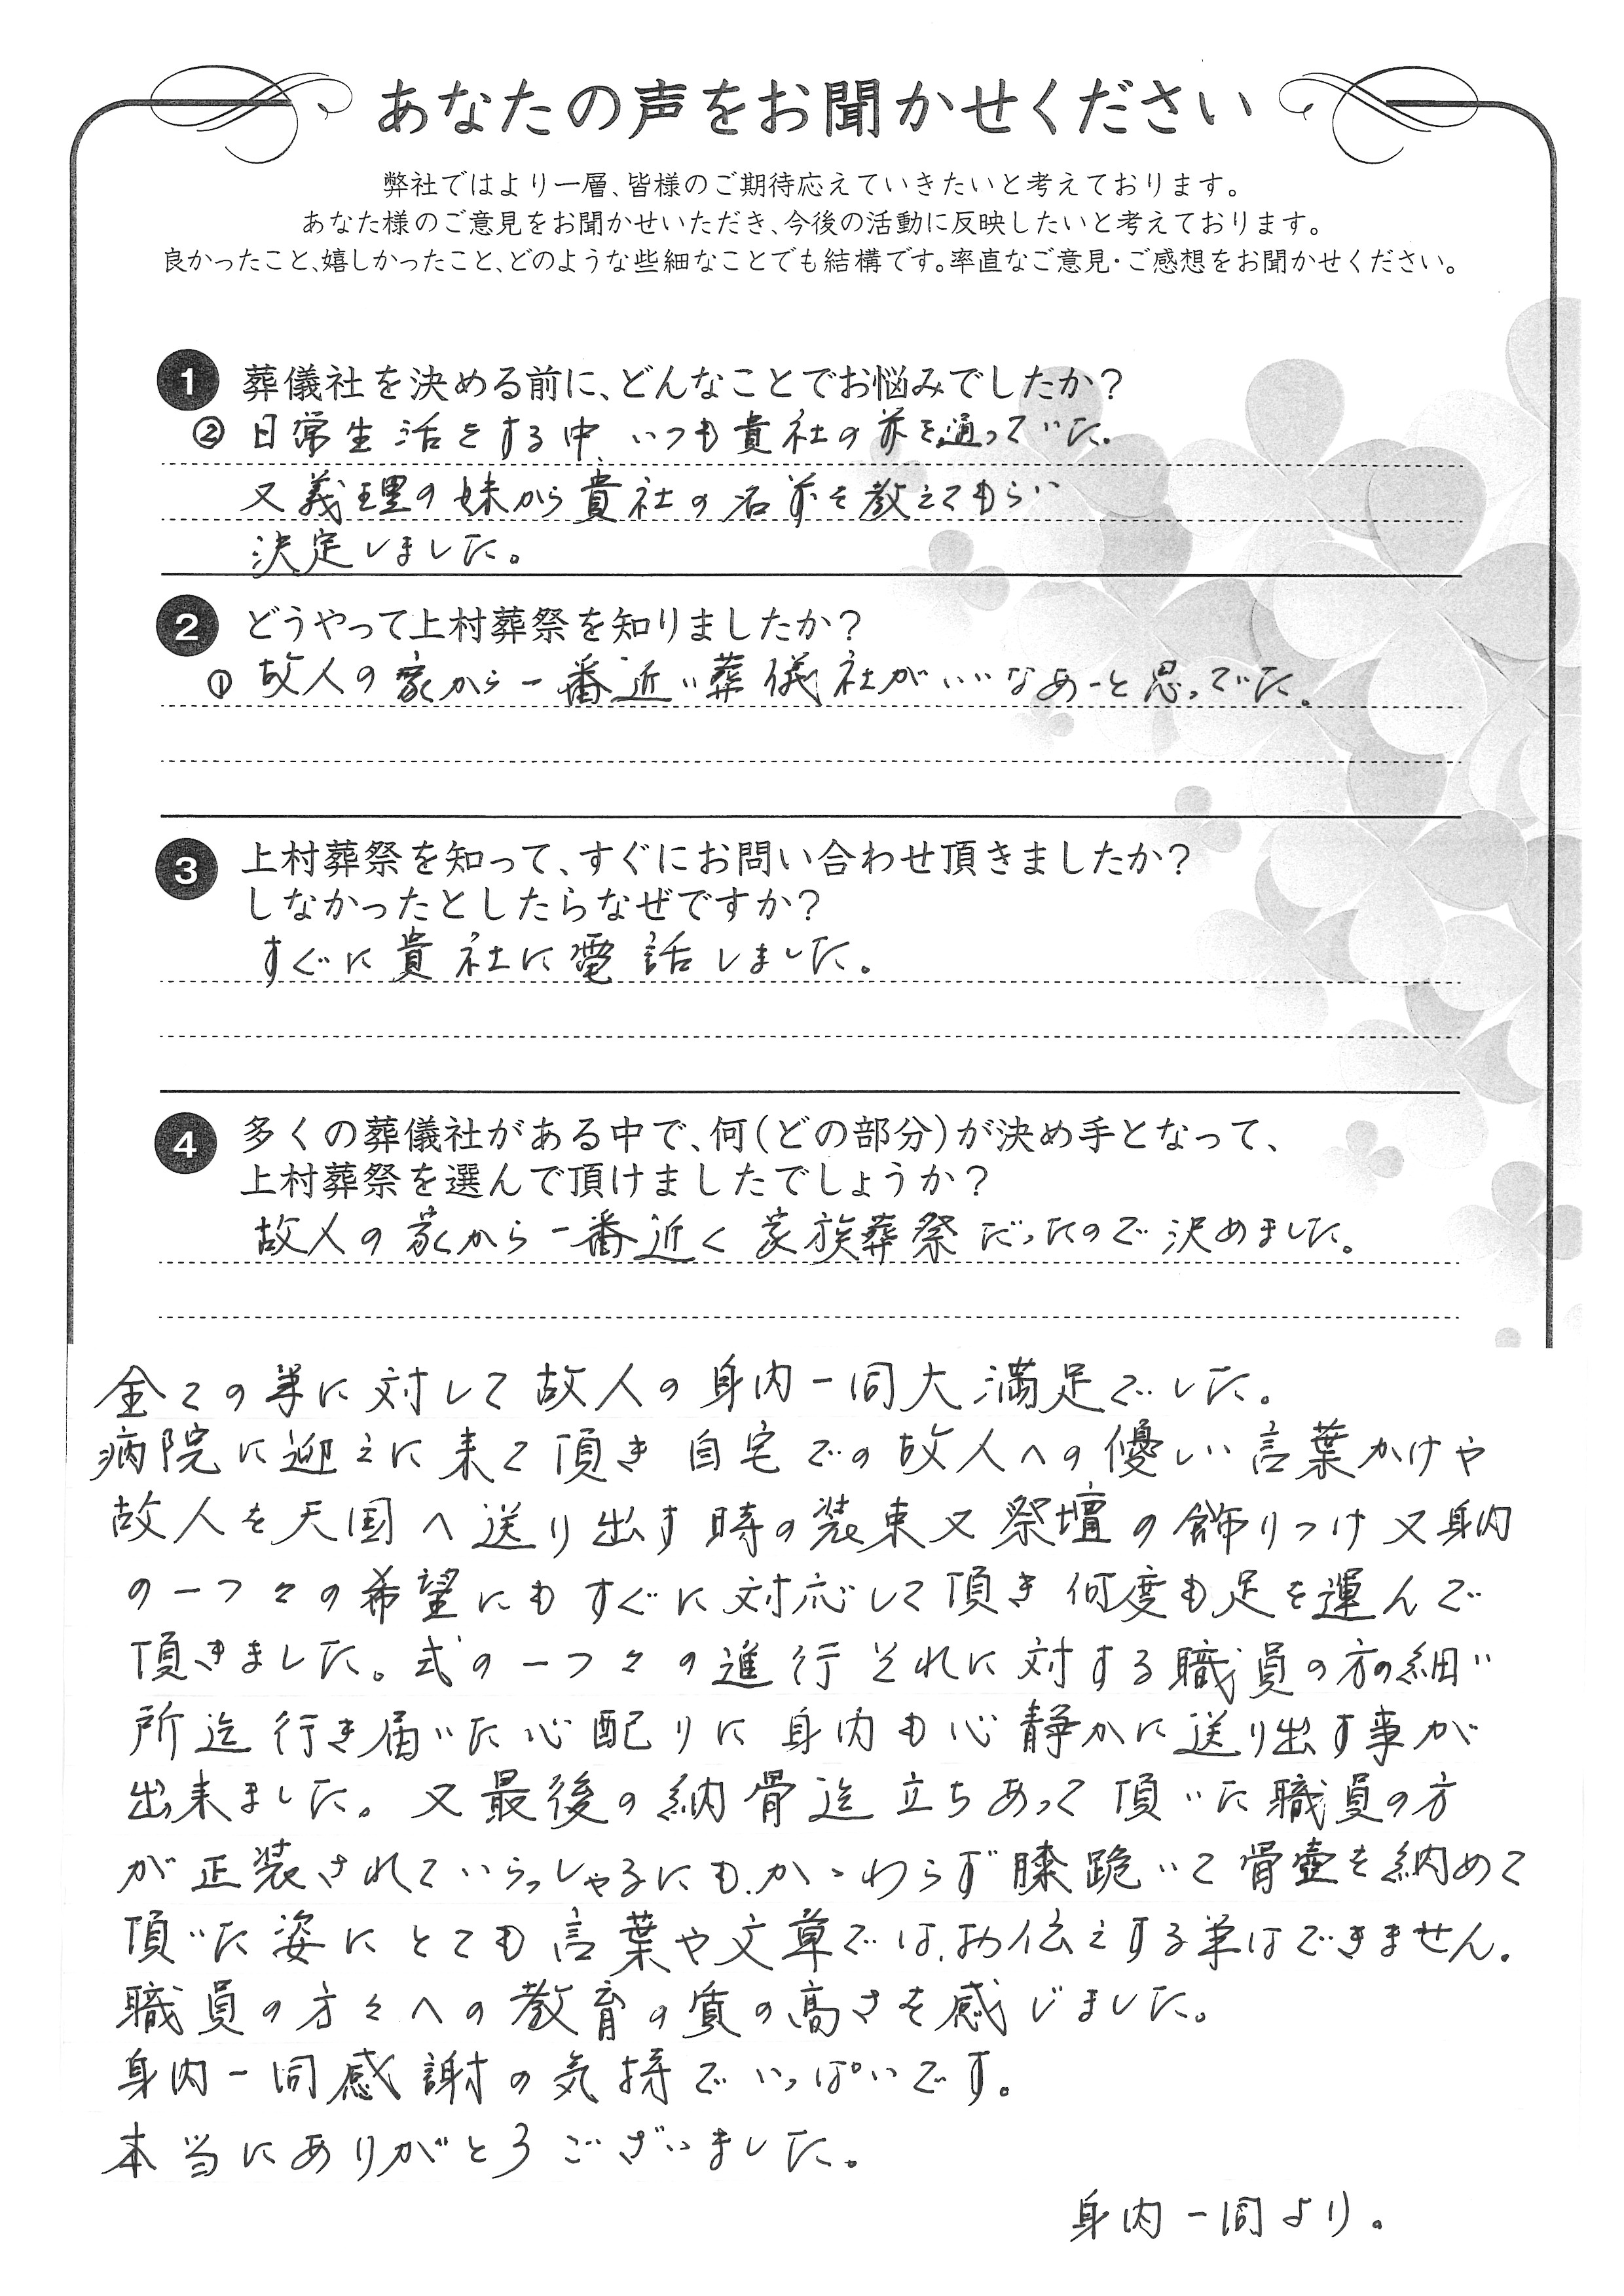 あなたの声をお聞かせください
弊社ではより一層、皆様のご期待応えていきたいと考えております。
あなた様のご意見をお聞かせいただき、今後の活動に反映したいと考えております。
良かったこと、嬉しかったこと、どのような些細なことでも結構です。率直なご意見・ご感想をお聞かせください。
1 葬儀社を決める前に、どんなことでお悩みでしたか?
② 日常生活をする中、いつも貴社の前を通っていた。
又義理の妹から貴社の名前を教えてもらい
決定しました。
2 どうやって上村葬祭を知りましたか?
① 故人の家から一番近い葬儀社がいいなあーと思ってた。
3 上村葬祭を知って、すぐにお問い合わせ頂きましたか?
しなかったとしたらなぜですか?
すぐに貴社に電話しました。
4 多くの葬儀社がある中で、何(どの部分)が決め手となって、
上村葬祭を選んで頂けましたでしょうか?
故人の家から一番近く家族葬祭だったので決めました。
全ての事に対して故人の身内一同大満足でした。
病院に迎えに来て頂き自宅での故人への優しい言葉かけや
故人を天国へ送り出す時の装束又祭壇の飾りつけ又身内
の一つ々の希望にもすぐに対応して頂き何度も足を運んで
頂きました。式の一つ々の進行それに対する職員の方の細い
所迄行き届いた心配りに身内も心静かに送り出す事が
出来ました。又最後の納骨迄立ちあって頂いた職員の方
が正装されていらっしゃるにもかゝわらず膝跪いて骨壺を納めて
頂いた姿にとても言葉や文章ではお伝えする事はできません。
職員の方々への教育の質の高さを感じました。
身内一同感謝の気持でいっぱいです。
本当にありがとうございました。
身内一同より。